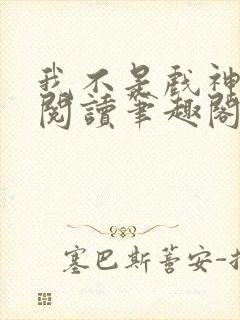 我不是戲神
閱讀筆趣閣
塞巴斯蒂安-